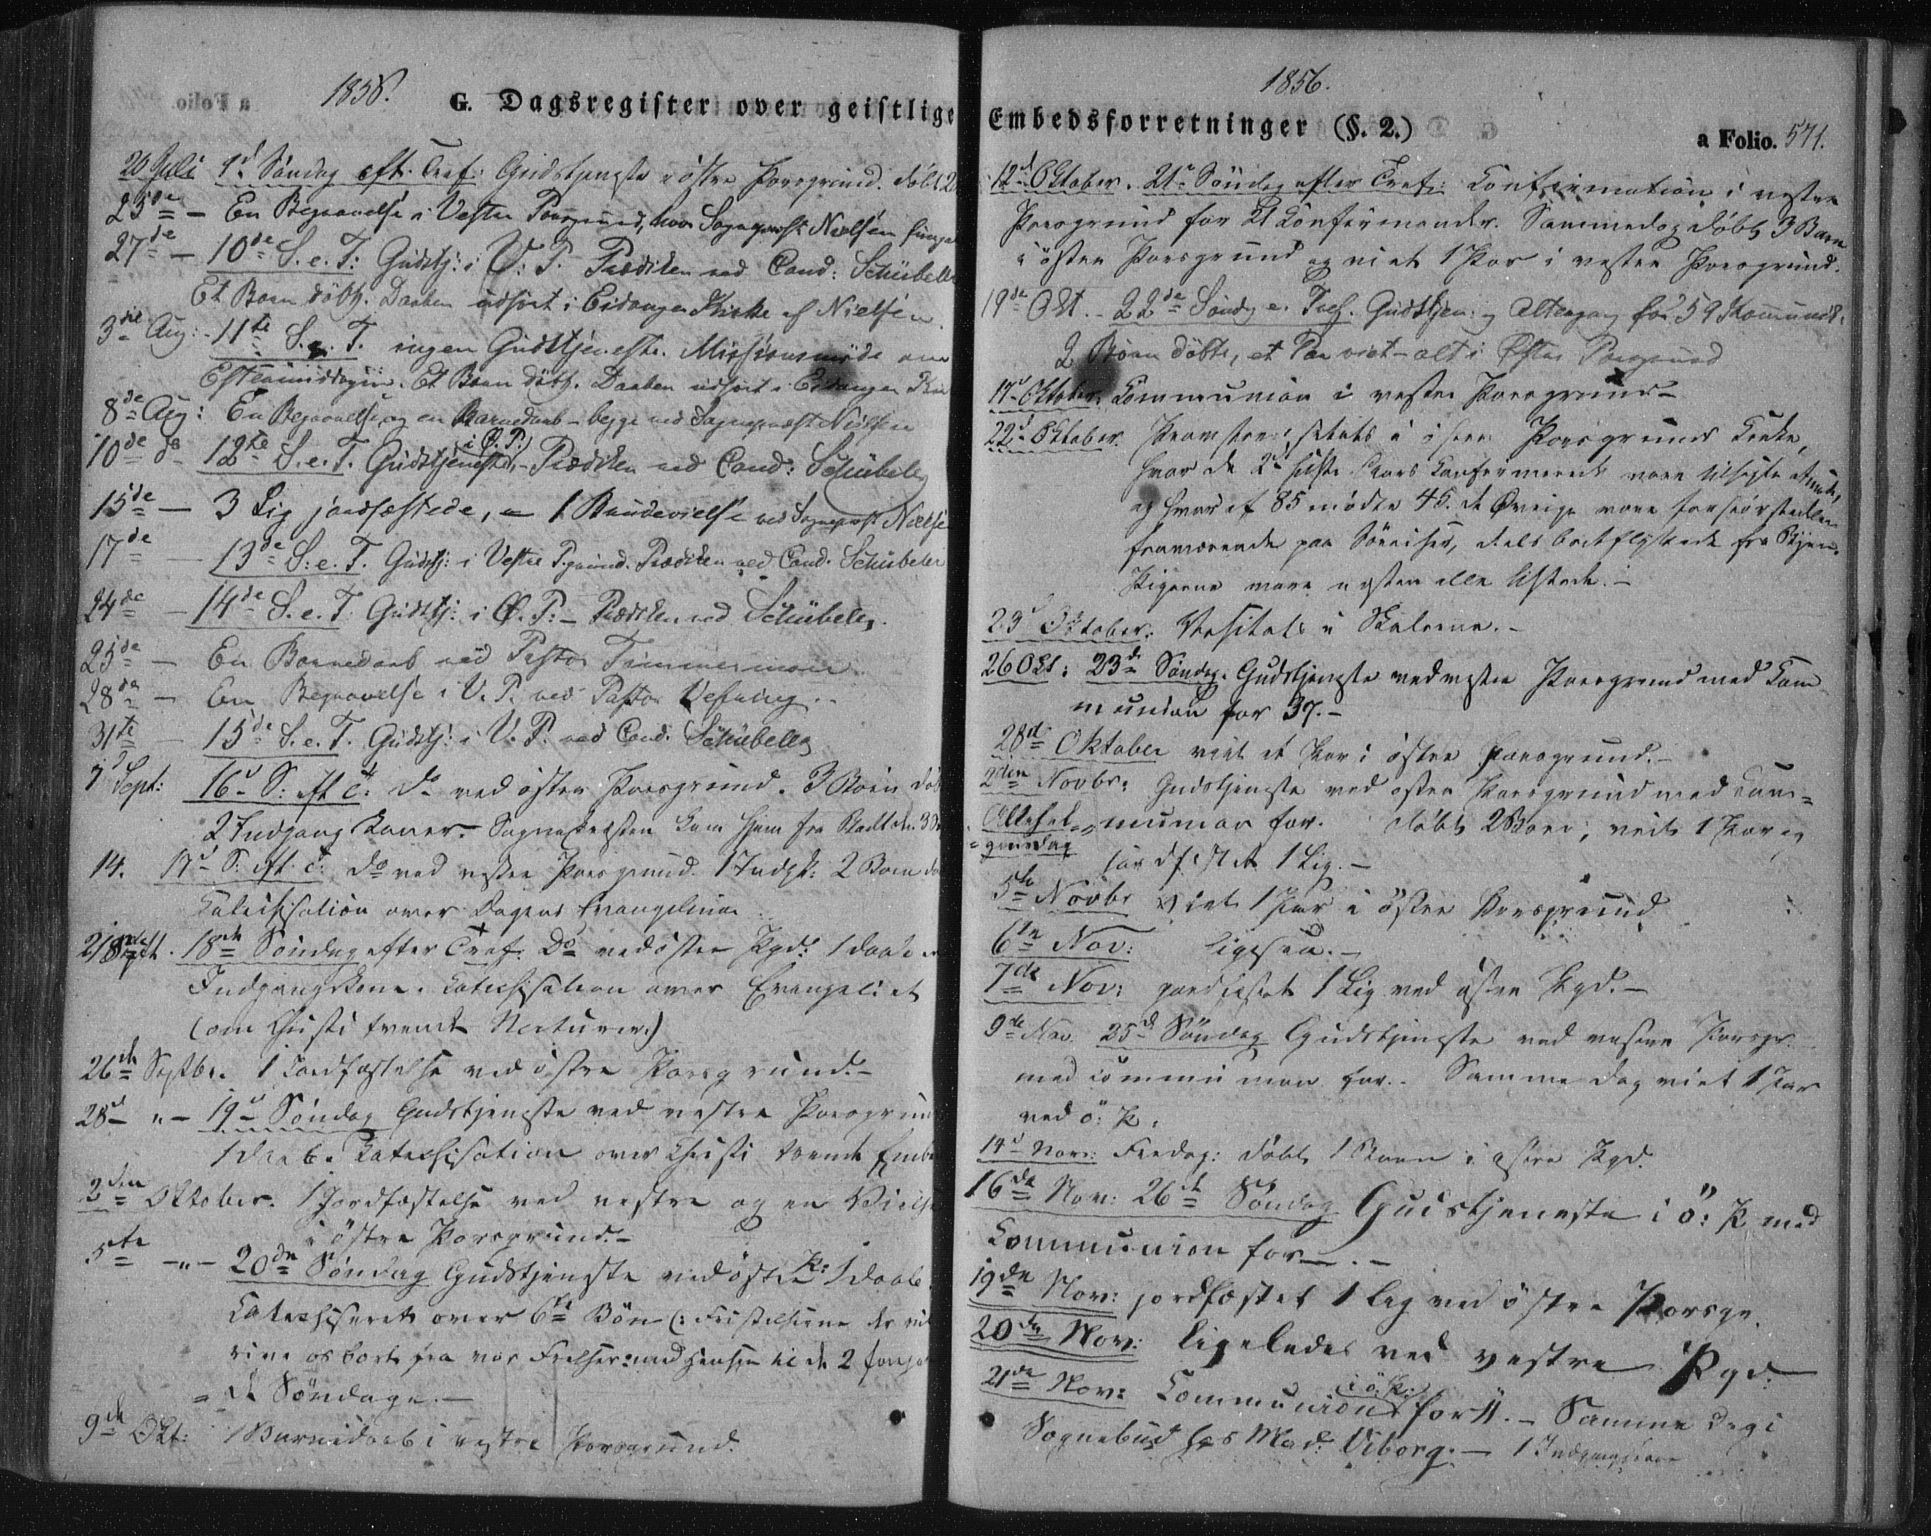 1856.
G. Dagsregister over geistlige
20 Juli 9d Søndag eft. Tref: Gudstjeneste i østre Porsgrund. døbt 2
23de — En Begravelse i Vestre Porsgrund, hvor Sogneprest Nielsen
27de — 10de S. e. T: Gudstj: i V. P. Prædiken ved Cand: Schübeler
Et Barn døbt. Daaben udført i Eidanger Kirke af Nielsen
3die Aug: 11te S. e. T. ingen Gudstjeneste. Missionsmøde om
Eftermiddagen. Et Barn døbt. Daaben udført i Eidanger
8de Aug: En Begravelse og en Barnedaab — begge ved Sogneprest Nielsen
10de do 12te S. e. T. Gudstjeneste (i Ø. P.) — Prædiken ved Cand: Schübeler
15de — 3 Lig jordfæstede, 1 Brudevielse ved Sogneprest Nielsen
17de 13de S: e. T. Gudstj: i Vestre P.grund. Prædiken ved Cand. Schübeler
24de — 14de S. e. T. Gudstj: i Ø. P: — Prædiken ved Schübeler.
25de — En Barnedaab ved Pastor Timmerman
28de — En Begravelse i V. P. ved Pastor
31te 15de S. e. T. Gudstj: i V. P. ved Cand. Schübeler
7d Sept: 16d S: eft T: do ved østre Porsgrund. 3 Børn
2 Indgangskoner. Sognepresten kom hjem fra
14. 17d S. eft T: do ved vestre Porsgrund. 1 Indgk: 2 Børn
Katechisation over Dagens Evangelium
21 Sept. 18de Søndag efter Tref. Do ved østre Pgd: 1 Daab
Indgangskone. Katechisation over Evangeliet
(om Christi tvende Naturer.)
26de Septbr. 1 Jordfæstelse ved østre Porsgrund. —
28d „ — 19d Søndag Gudstjeneste ved vestre Porsgrund
1 Daab. Katechisation over Christi
2den Oktober. 1 Jordfæstelse ved vestre og en Vielse
i østre Porsgrund. —
5te — „ — 20de Søndag Gudstjeneste ved østre P: 1 Daab.
Katechiseret over 6te Bøn
os bort fra vor Frelser: med Hensyn til de 2
de Søndage. —
9de Okt: 1 Barnedaab i vestre Porsgrund.
1856.
Embedsforretninger (§. 2.)
a Folio. 571.
12d Oktober. 21d Søndag efter Tref: Confirmation i vestre
Porsgrund for 21 Confirmander. Samme dag døbt 3 Børn
i østre Porsgrund og viet 1 Par i vestre Porsgrund.
19de Okt. — 22de Søndg e. Tref. Gudstjen. og Altergang for 59 Kommunik:
2 Børn døbte, et Par viet — alt i Østre Porsgrund
17d Oktober: Communion i vestre Porsgrund —
22d Oktober. i østre Porsgrund Kirke,
hvor de 2de sidste Aars Confirmerede vare tilsagte at møde,
og hvoraf 85 mødte 45. de Øvrige vare for største Delen
fraværende paa Søreiser, dels bortflyttede fra Byen.
Pigerne vare næsten alle tilstede. —
23d Oktober. Visitats i Skolerne. —
26 Okt: 23de Søndag. Gudstjeneste ved vestre Porsgrund med Com-
munion for 37. —
28d Oktober viet et Par i østre Porsgrund. —
2den Novbr: Gudstjeneste ved østre Porsgrund med Com=
Allehel- munion for. døbt 2 Børn, viet 1 Par og
gensdag jordfæstet 1 Lig. —
5te Novbr viet 1 Par i østre Porsgrund
6te Nov: ligesaa. —
7de Nov: jordfæstet 1 Lig ved østre Pgd. —
9de Nov. 25d Søndag Gudstjeneste ved vestre Porsgr.
med Communion for. — Samme Dag viet 1 Par
ved ø: P.
14d Nov: Fredag: døbt 1 Barn i østre Pgd.
16de Nov: 26d Søndag Gudstjeneste i ø: P. med
Communion for — . —
19de Nov: jordfæstet 1 Lig ved østre Porsgr.
20de Nov: ligeledes ved vestre Pgd:
21de Nov: Communion i ø. P: for 11. — Samme Dag i
Sognebud hos Mad: Viborg. — 1 Indgangskone